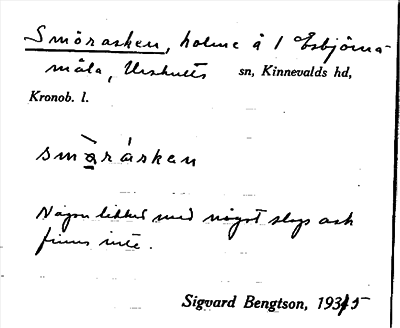 Smörasken, holme å 1 Esbjörna-
måla, Urshults sn, Kinnevalds hd,
Kronob. l.
smə̀rásken
Någon likhet med något slags ask
finns inte.
Sigvard Bengtson, 1935